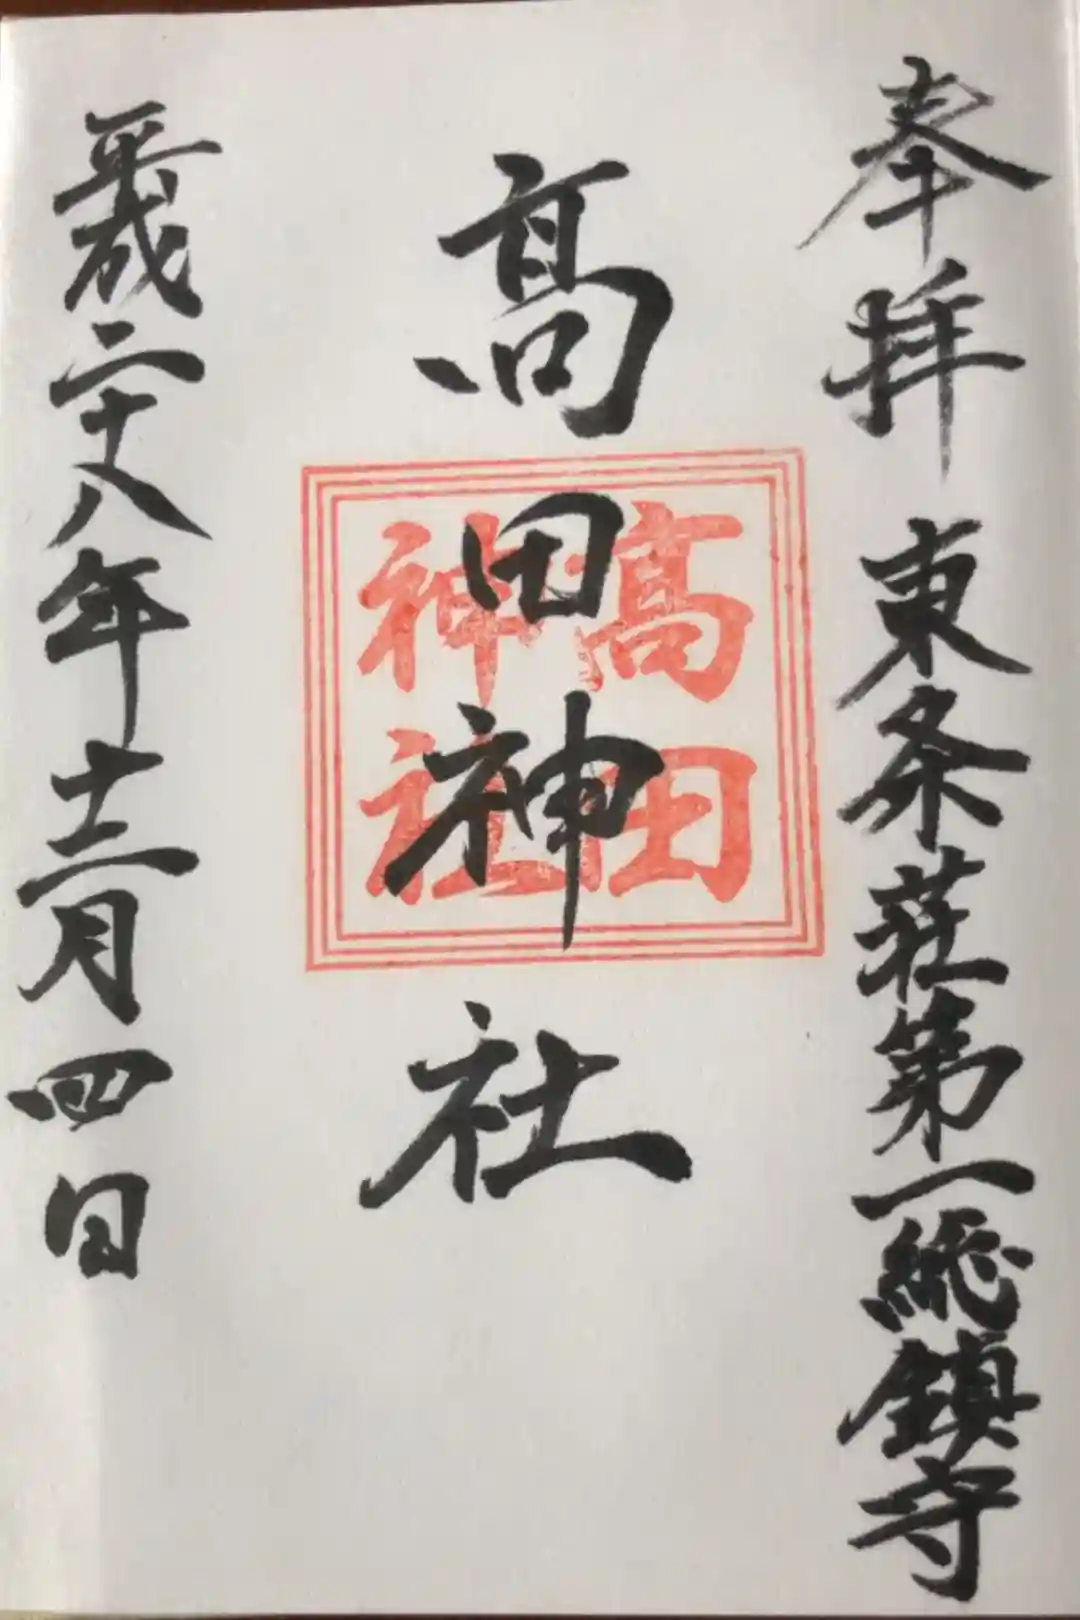 奉拝 東条荘第一総鎮守
髙田神社
髙田
神社
平成二十八年十二月四日